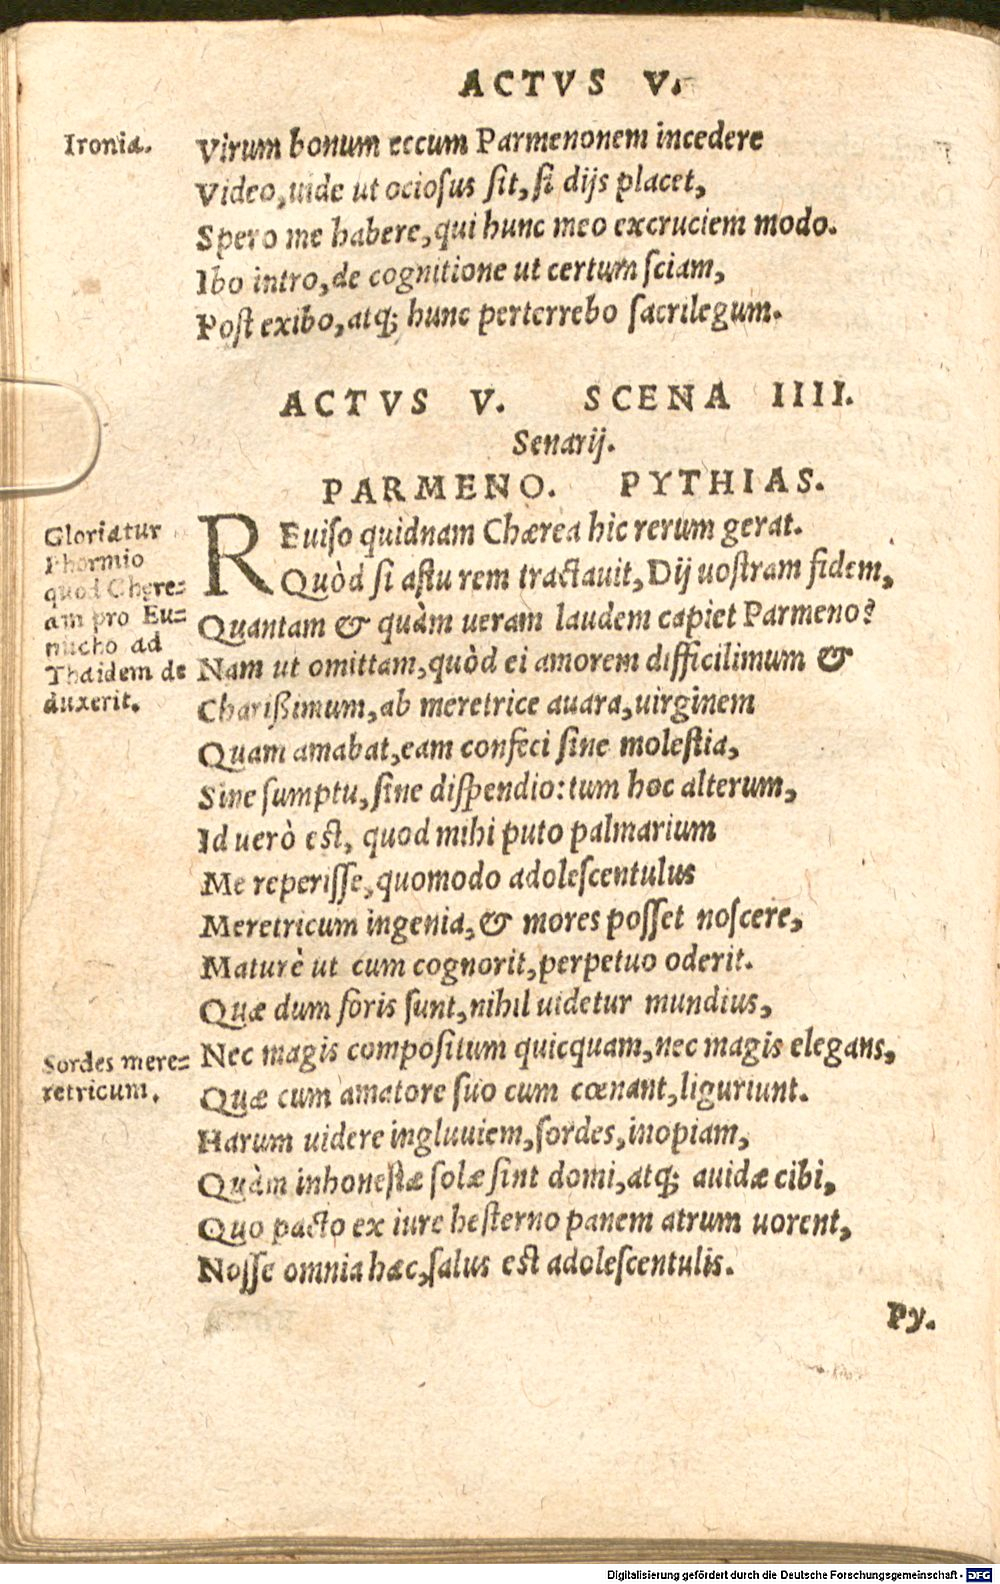 ACTVS V.
Ironia.
Virum bonum eccum Parmenonem incedere
Video,uide ut ociosus sit,si dijs placet,
Spero me habere,qui hunc meo excruciem modo.
Ibo intro,de cognitione ut certum sciam,
Post exibo,atq; hunc perterrebo sacrilegum.
ACTVS V. SCENA IIII.
Senarij.
PARMENO. PYTHIAS.
Gloriatur
Phormio
quod Chęre-
am pro Eu-
nucho ad
Thaidem de
duxerit.
REuiso quidnam Chærea hic rerum gerat.
Quòd si astu rem tractauit,Dij uostram fidem,
Quantam & quàm ueram laudem capiet Parmeno?
Nam ut omittam,quòd ei amorem difficilimum &
Charißimum,ab meretrice auara,uirginem
Quam amabat,eam confeci sine molestia,
Sine sumptu,sine dispendio:tum hoc alterum,
Id uerò est, quod mihi puto palmarium
Me reperisse,quomodo adolescentulus
Meretricum ingenia,& mores posset noscere,
Maturè ut cum cognorit,perpetuo oderit.
Quæ dum foris sunt,nihil uidetur mundius,
Nec magis compositum quicquam,nec magis elegans,
Sordes mere-
retricum.
Quæ cum amatore suo cum cœnant,liguriunt.
Harum uidere ingluuiem,sordes,inopiam,
Quàm inhonestæ solæ sint domi,atq; auidæ cibi,
Quo pacto ex iure hesterno panem atrum uorent,
Nosse omnia hæc,salus est adolescentulis.
Py.
Digitalisierung gefördert durch die Deutsche Forschungsgemeinschaft - DFG